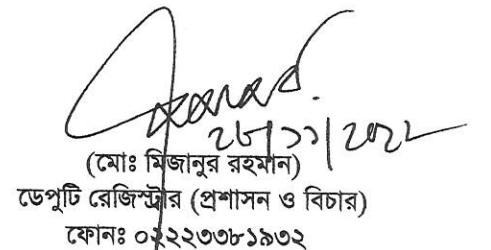 ২৮/১১/২০২২
(মোঃ মিজানুর রহমান)
ডেপুটি রেজিস্ট্রার (প্রশাসন ও বিচার)
ফোনঃ ০২২২৩৩৮১৯৩২